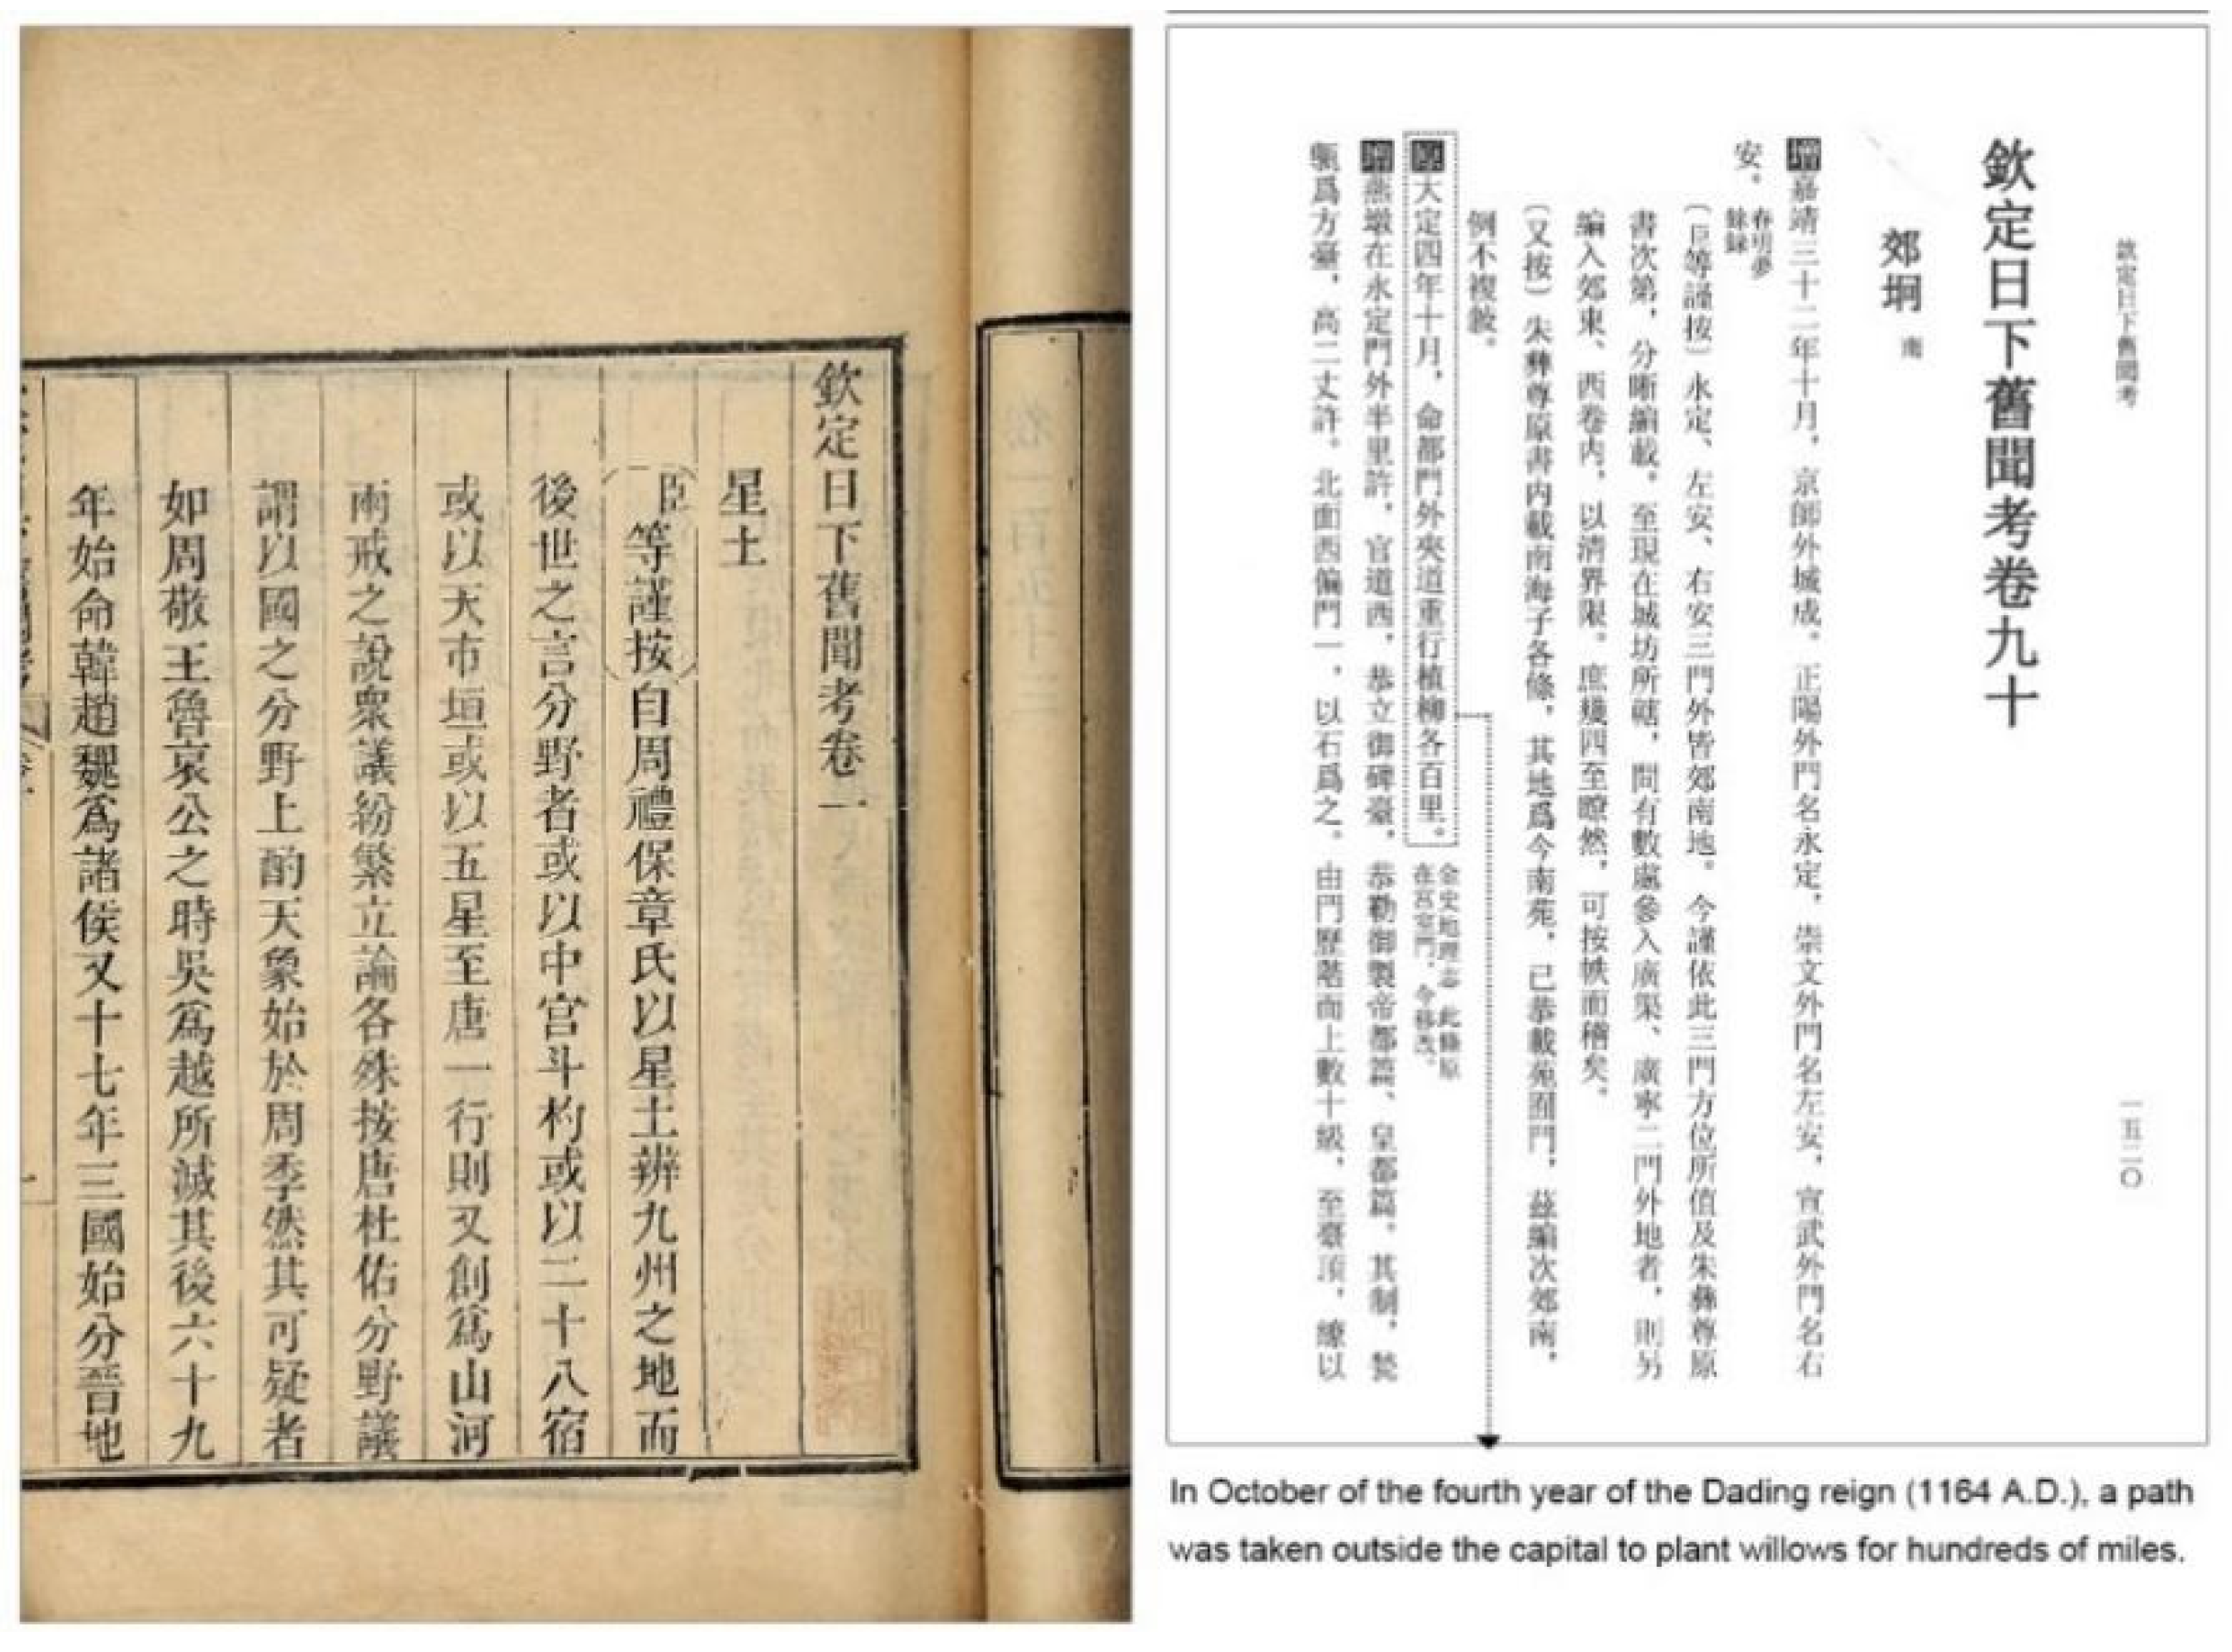 欽定日下舊聞考卷一
星土
臣等謹按自周禮保章氏以星土辨九州之地而
後世之言分野者或以中宮斗杓或以二十八宿
或以天市垣或以五星至唐一行則又創爲山河
兩戒之說衆議紛繁立論各殊按唐杜佑分野議
謂以國之分野上酌天象始於周季然其可疑者
如周敬王魯哀公之時吳爲越所滅其後六十九
年始命韓趙魏爲諸侯又十七年三國始分晉地
欽定日下舊聞考
一五二〇
欽定日下舊聞考卷九十
郊坰 南
增嘉靖三十二年十月，京師外城成。正陽外門名永定，崇文外門名左安，宣武外門名右
安。春明夢餘錄
〔臣等謹按〕永定、左安、右安三門外皆郊南地。今謹依此三門方位所值及朱彝尊原
書次第，分晰編載。至現在城坊所轄，間有數處參入廣渠、廣寧二門外地者，則另
編入郊東、西卷內，以清界限。庶幾四至瞭然，可按帙而稽矣。
〔又按〕朱彝尊原書內載南海子各條，其地爲今南苑，已恭載苑囿門，茲編次郊南，
例不複敍。
原大定四年十月，命都門外夾道重行植柳各百里。金史地理志 此條原在宮室門，今移改。
增燕墩在永定門外半里許，官道西，恭立御碑臺，恭勒御製帝都篇、皇都篇。其制，甃
甎爲方臺，高二丈許。北面西偏門一，以石爲之。由門歷階而上數十級，至臺頂，繚以
In October of the fourth year of the Dading reign (1164 A.D.), a path
was taken outside the capital to plant willows for hundreds of miles.